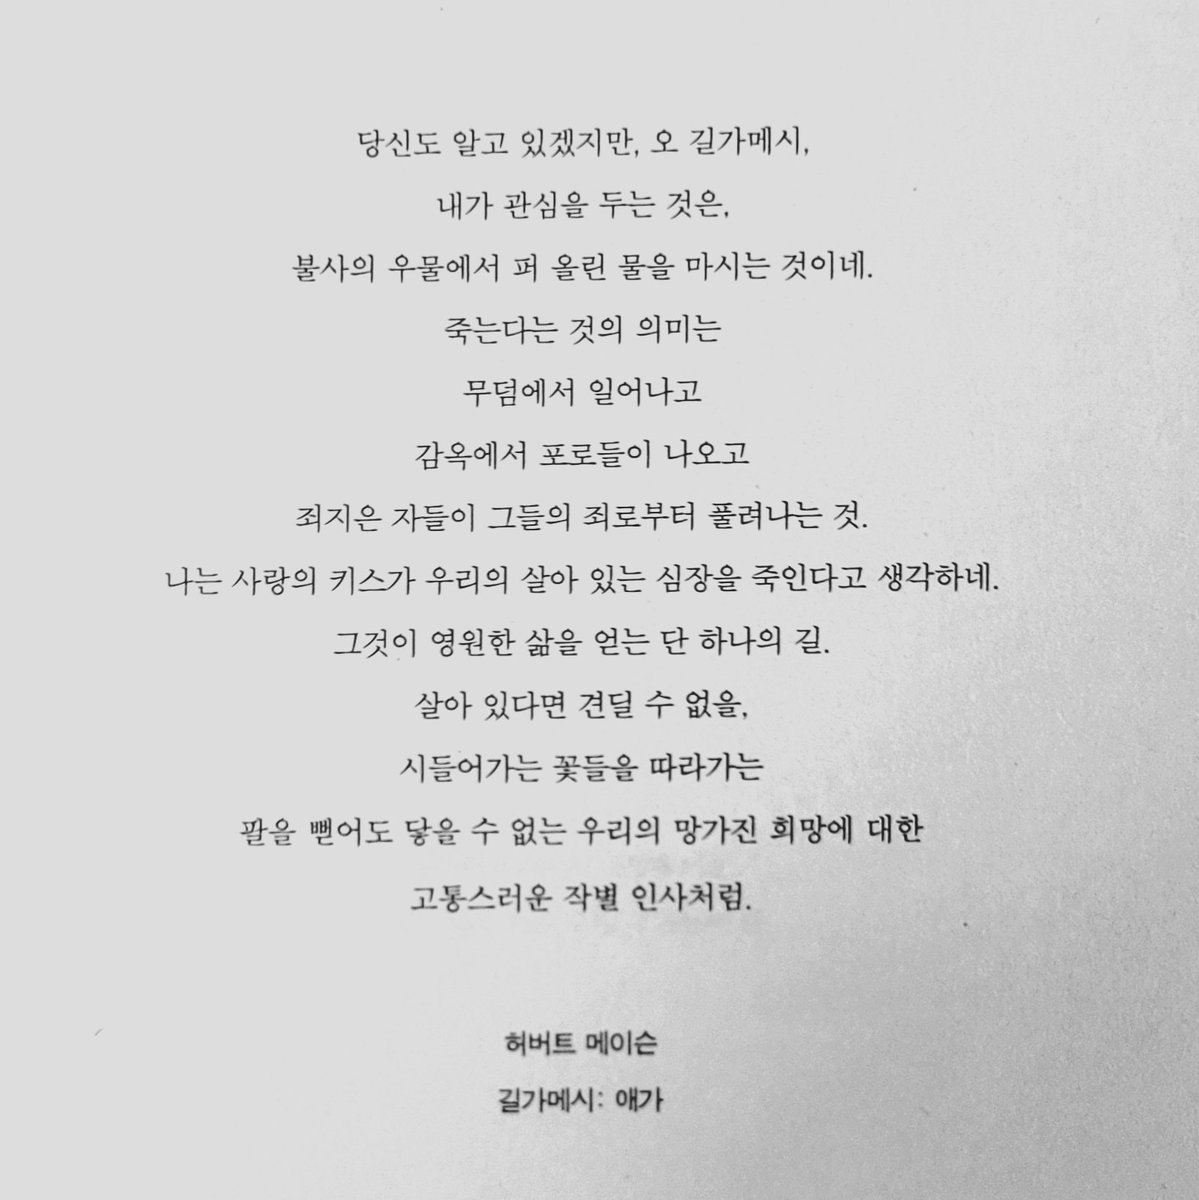 당신도 알고 있겠지만, 오 길가메시,
내가 관심을 두는 것은,
불사의 우물에서 퍼 올린 물을 마시는 것이네.
죽는다는 것의 의미는
무덤에서 일어나고
감옥에서 포로들이 나오고
죄지은 자들이 그들의 죄로부터 풀려나는 것.
나는 사랑의 키스가 우리의 살아 있는 심장을 죽인다고 생각하네.
그것이 영원한 삶을 얻는 단 하나의 길.
살아 있다면 견딜 수 없을,
시들어가는 꽃들을 따라가는
팔을 뻗어도 닿을 수 없는 우리의 망가진 희망에 대한
고통스러운 작별 인사처럼.
허버트 메이슨
길가메시: 애가